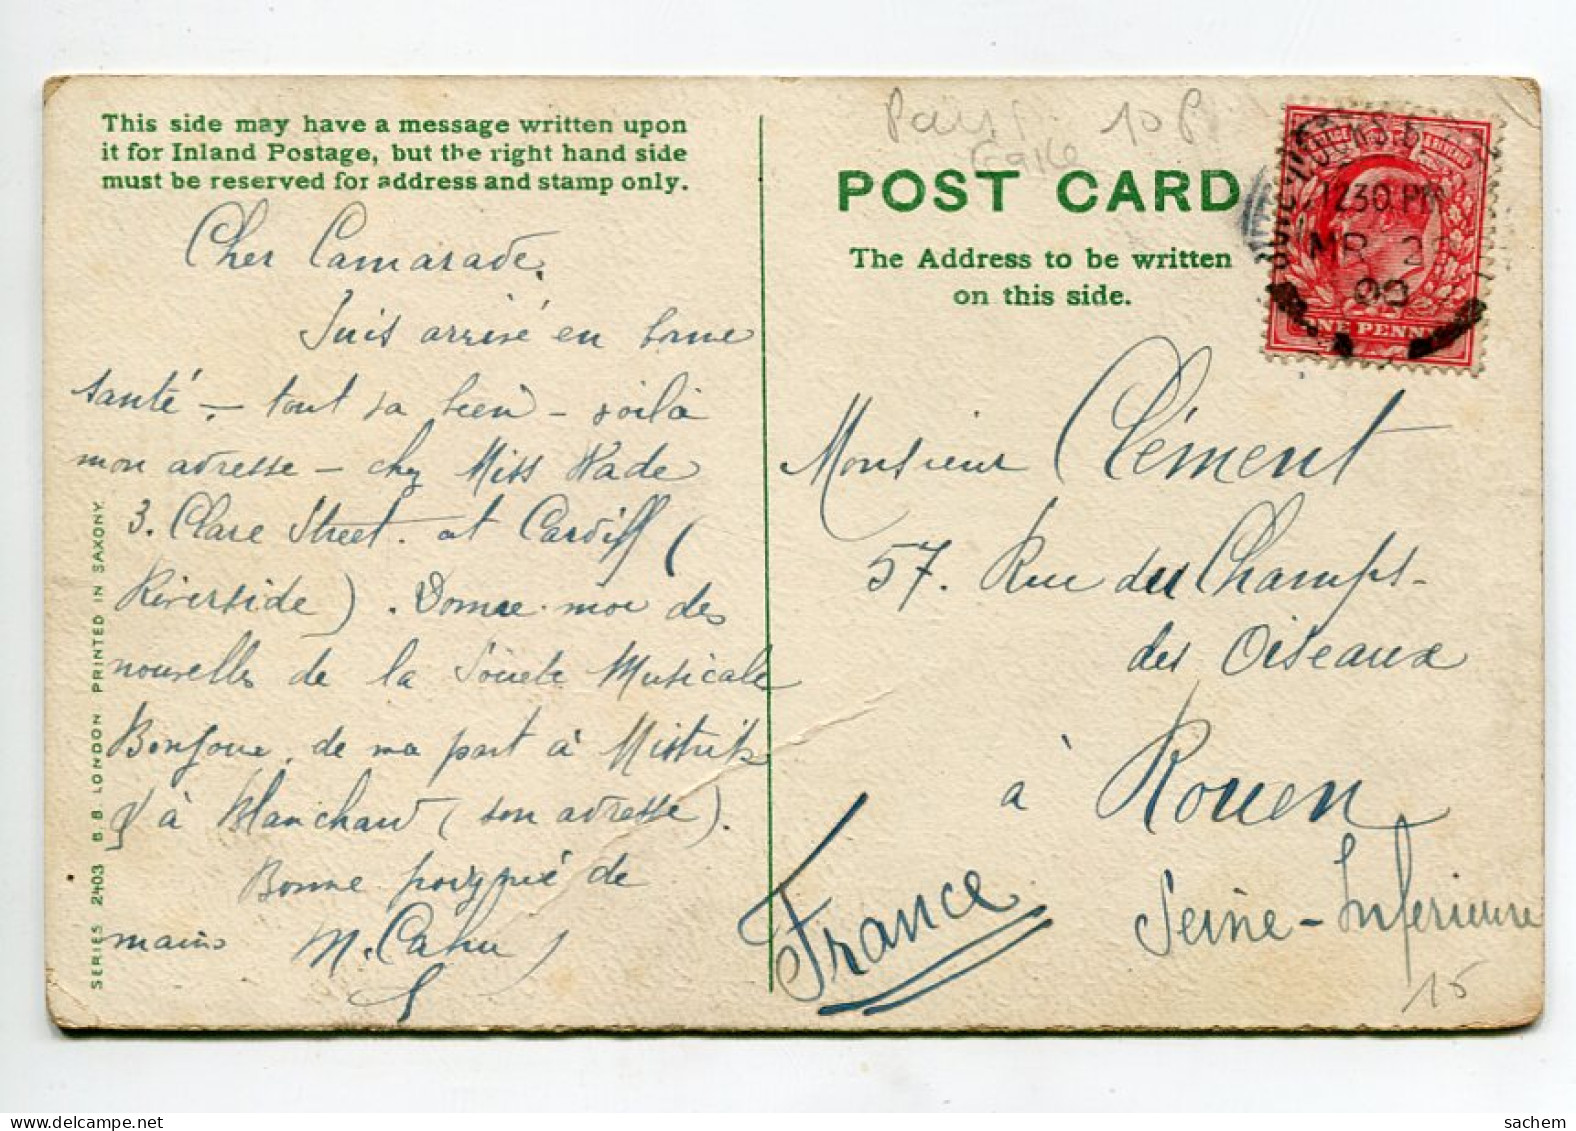 This side may have a message written upon
it for Inland Postage, but the right hand side
must be reserved for address and stamp only.
Cher Camarade,
Suis arrivé en bonne
santé - tout va bien - voilà
mon adresse - chez Miss Wade
3. Clare Street. at Cardiff (
Riverside). Donne-moi des
nouvelles de la Société Musicale
Bonjour de ma part à
à Blanchard (son adresse).
Bonne poignée de
main M. Cahu
SERIES 2403 B.B. LONDON PRINTED IN SAXONY.
Pays Galle 10 P
POST CARD
The Address to be written
on this side.
12 30 PM
MR 23
09
ONE PENNY
Monsieur Clément
57. Rue du Champs-
des Oiseaux
à Rouen
Seine-Inferieure
France
15
sachem